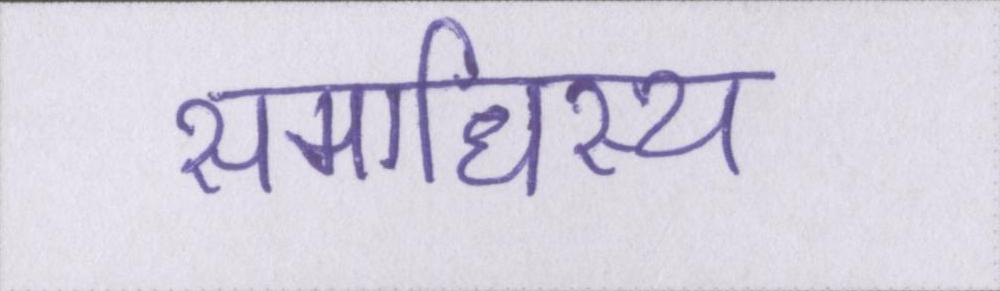 समाधिस्थ